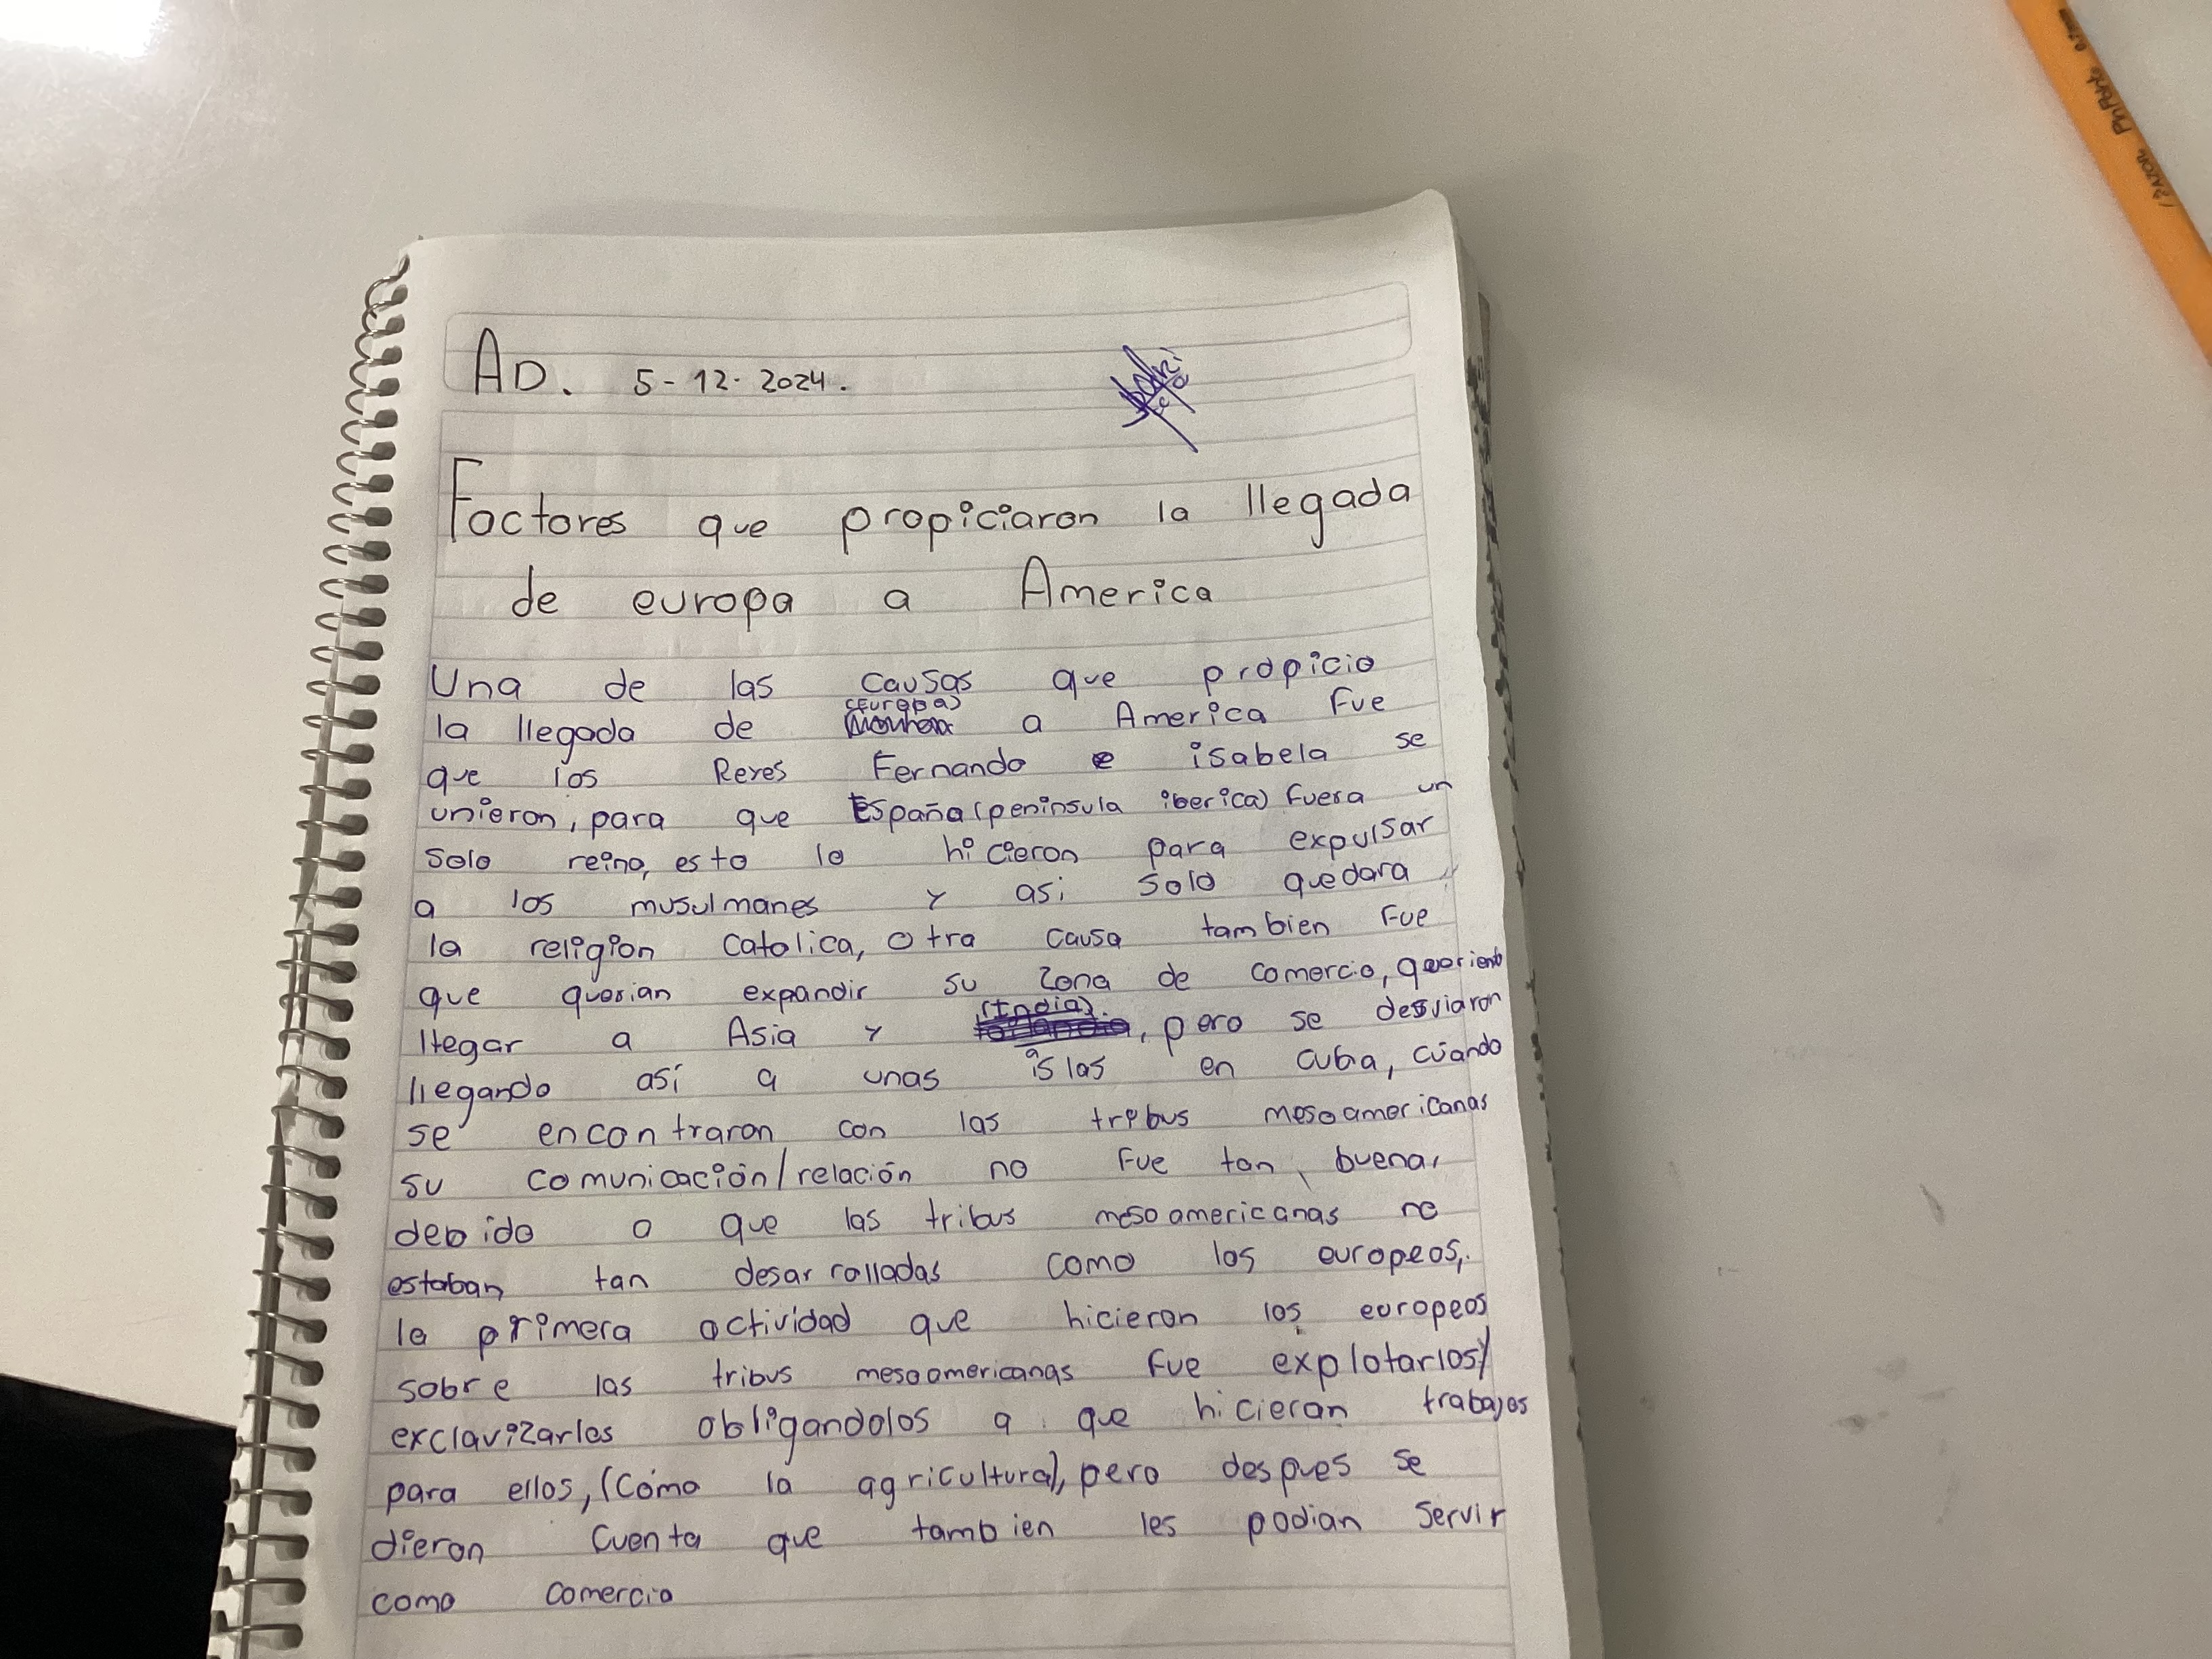 AD. 5-12-2024.
Factores que propiciaron la llegada
de europa a America
Una de las causas que propicio
(Europa)
la llegada de a America fue
que los Reyes Fernando e isabela se
unieron, para que España (peninsula iberica) fuera un
solo reino, esto lo hicieron para expulsar
a los musulmanes y asi solo quedara
la religion catolica, otra causa tambien fue
que querian expandir su zona de comercio, queriendo
(India).
llegar a Asia y , pero se desviaron
llegando así a unas islas en cuba, cuando
se encontraron con las tribus mesoamericanas
su comunicación/relación no fue tan buena,
debido a que las tribus mesoamericanas no
estaban tan desarrolladas como los europeos,
la primera actividad que hicieron los europeos
sobre las tribus mesoamericanas fue explotarlos y
exclavizarlos obligandolos a que hicieran trabajos
para ellos, (Como la agricultura), pero despues se
dieron cuenta que tambien les podian servir
como comercio